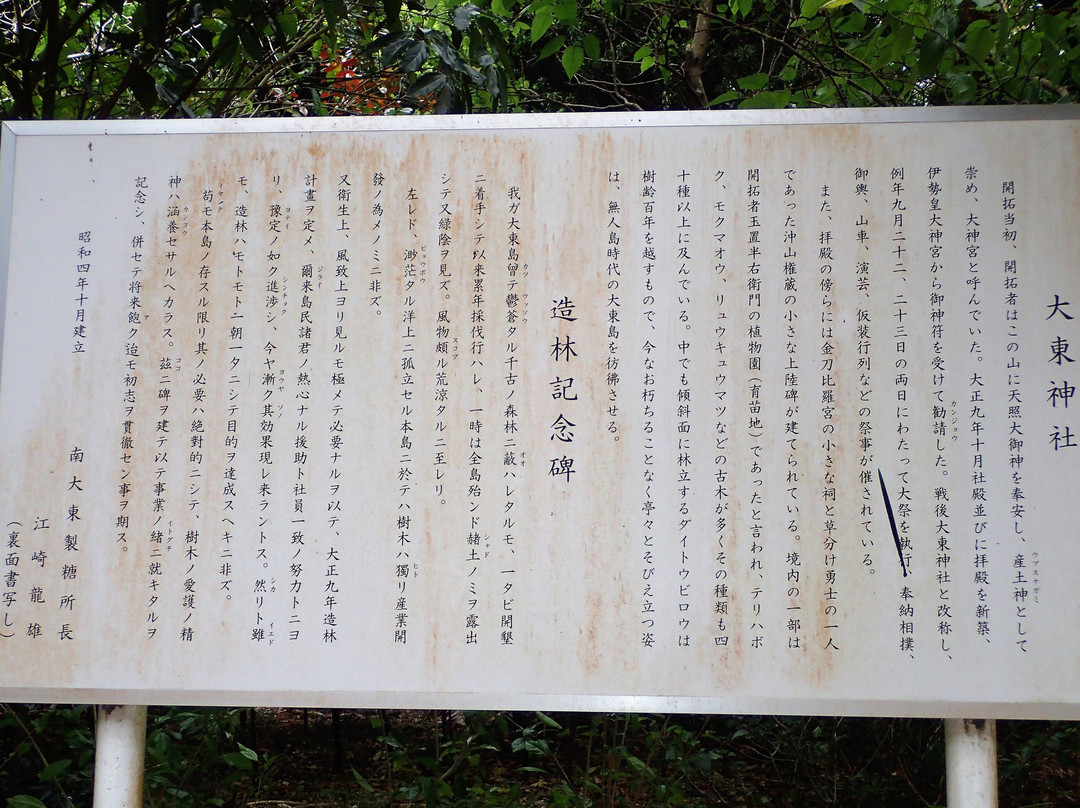 大東神社
開拓当初、開拓者はこの山に天照大御神を奉安し、産土神として
ウブスナガミ
崇め、大神宮と呼んでいた。大正九年十月社殿並びに拝殿を新築、
伊勢皇大神宮から御神符を受けて勧請した。戦後大東神社と改称し、
カンジョウ
例年九月二十二、二十三日の両日にわたって大祭を執行、奉納相撲、
御輿、山車、演芸、仮装行列などの祭事が催されている。
また、拝殿の傍らには金刀比羅宮の小さな祠と草分け勇士の一人
であった沖山権蔵の小さな上陸碑が建てられている。境内の一部は
開拓者玉置半右衛門の植物園(育苗地)であったと言われ、テリハボ
ク、モクマオウ、リュウキュウマツなどの古木が多くその種類も四
十種以上に及んでいる。中でも傾斜面に林立するダイトウビロウは
樹齢百年を越すもので、今なお朽ちることなく亭々とそびえ立つ姿
は、無人島時代の大東島を彷彿させる。
造林記念碑
我ガ大東島曾テ鬱蒼タル千古ノ森林ニ蔽ハレタルモ、一タビ開墾
カツ ウッソウ オオ
ニ着手シテ以来累年採伐行ハレ、一時は全島殆ンド赭土ノミヲ露出
シャド
シテ又緑陰ヲ見ズ。風物頗ル荒涼タルニ至レリ。
スコブ
左レド、渺茫タル洋上ニ孤立セル本島ニ於テハ樹木ハ獨リ産業開
ビョウボウ ヒト
發ノ為メノミニ非ズ。
又衛生上、風致上ヨリ見ルモ極メテ必要ナルヲ以テ、大正九年造林
計畫ヲ定メ、爾来島民諸君ノ熱心ナル援助ト社員一致ノ努力トニヨ
ジライ
リ、豫定ノ如ク進渉シ、今ヤ漸ク其効果現レ来ラントス。然リト雖
ヨテイ シンチョク ヨウヤ ソノ シカ イエド
モ、造林ハモトモト一朝一タニシテ目的ヲ達成スヘキニ非ズ。
苟モ本島ノ存スル限リ其ノ必要ハ絶對的ニシテ、樹木ノ愛護ノ精
イヤシク
神ハ涵養セサルヘカラス。茲ニ碑ヲ建テ以テ事業ノ緒ニ就キタルヲ
カンヨウ ココ イトグチ
記念シ、併セテ将来飽ク迄モ初志ヲ貫徹セン事ヲ期ス。
ア
昭和四年十月建立
南大東製糖所長
江崎龍雄
(裏面書写し)